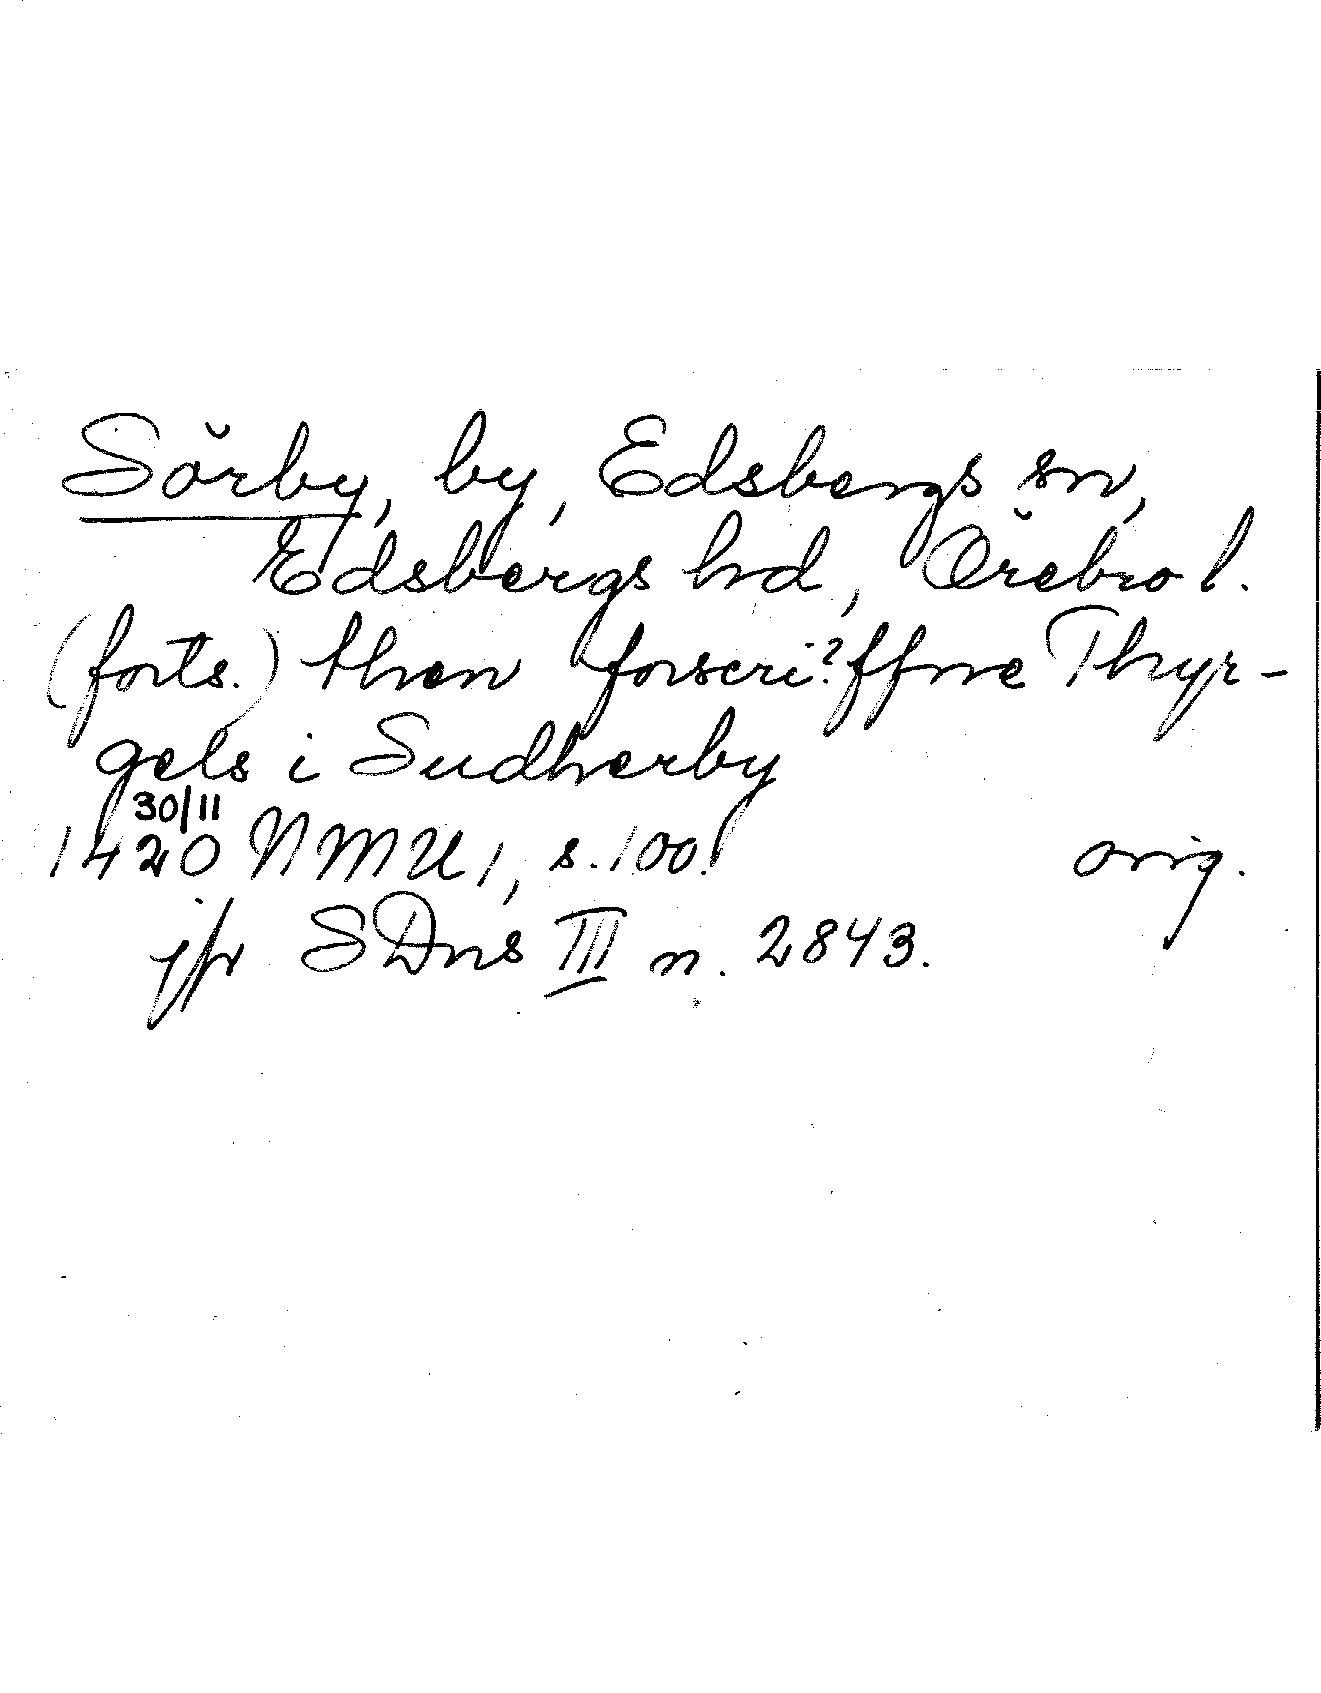 Sörby, by, Edsbergs sn,
Edsbergs hd, Örebro l.
(forts.) then forscri?ffne Thyr-
gels i Sudherby
30/11
1420 NMU 1, s. 100. orig.
jfr SDns III n. 2843.